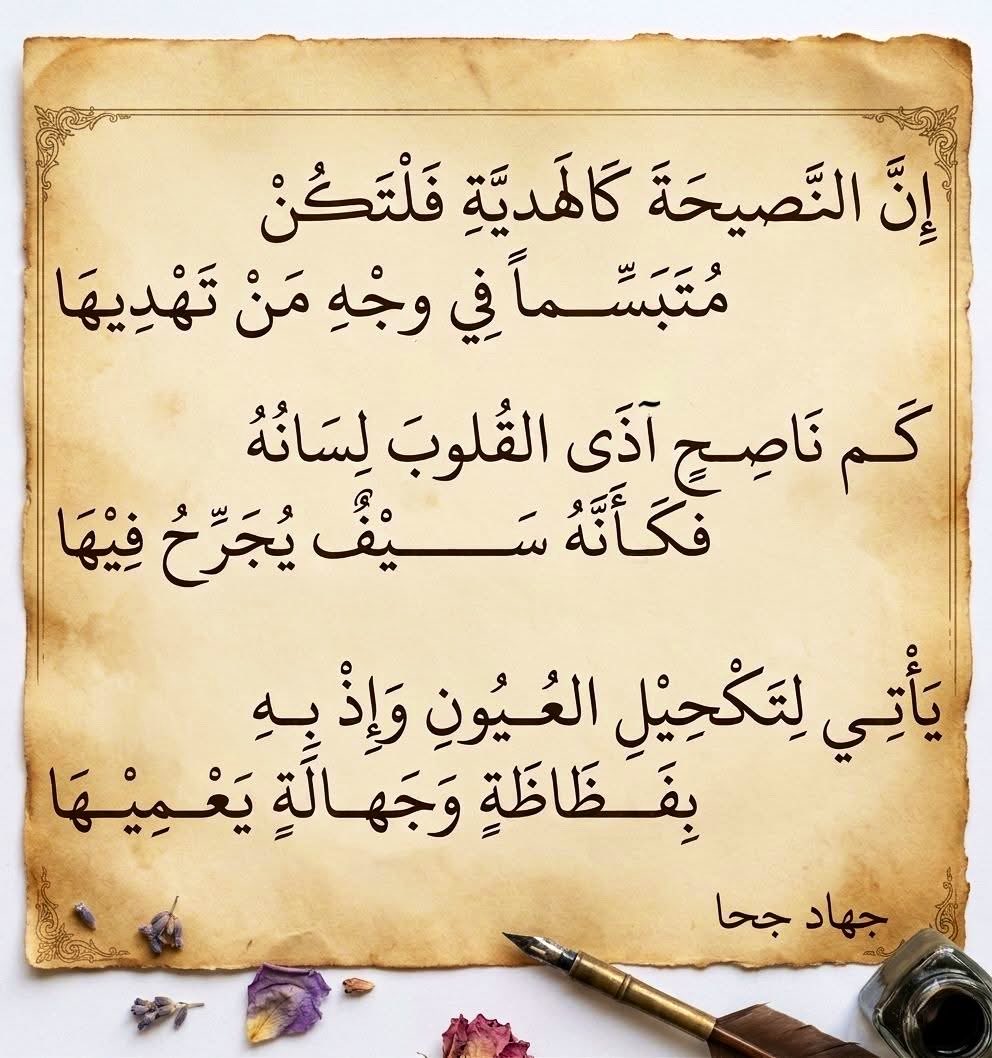 إِنَّ النَّصيحَةَ كَالهَديَّةِ فَلْتَكُنْ
مُتَبَسِّـــماً فِي وجْهِ مَنْ تَهْدِيهَا
كَـم نَاصِـحٍ آذَى القُلوبَ لِسَانُهُ
فكَـأَنَّهُ سَـــــيْفٌ يُجَرِّحُ فِيْهَا
يَأْتِـي لِتَكْحِيْلِ العُـيُونِ وَإِذْ بِـهِ
بِفَـــظَاظَةٍ وَجَهـالَةٍ يَعْـمِيْـهَا
جهاد جحا